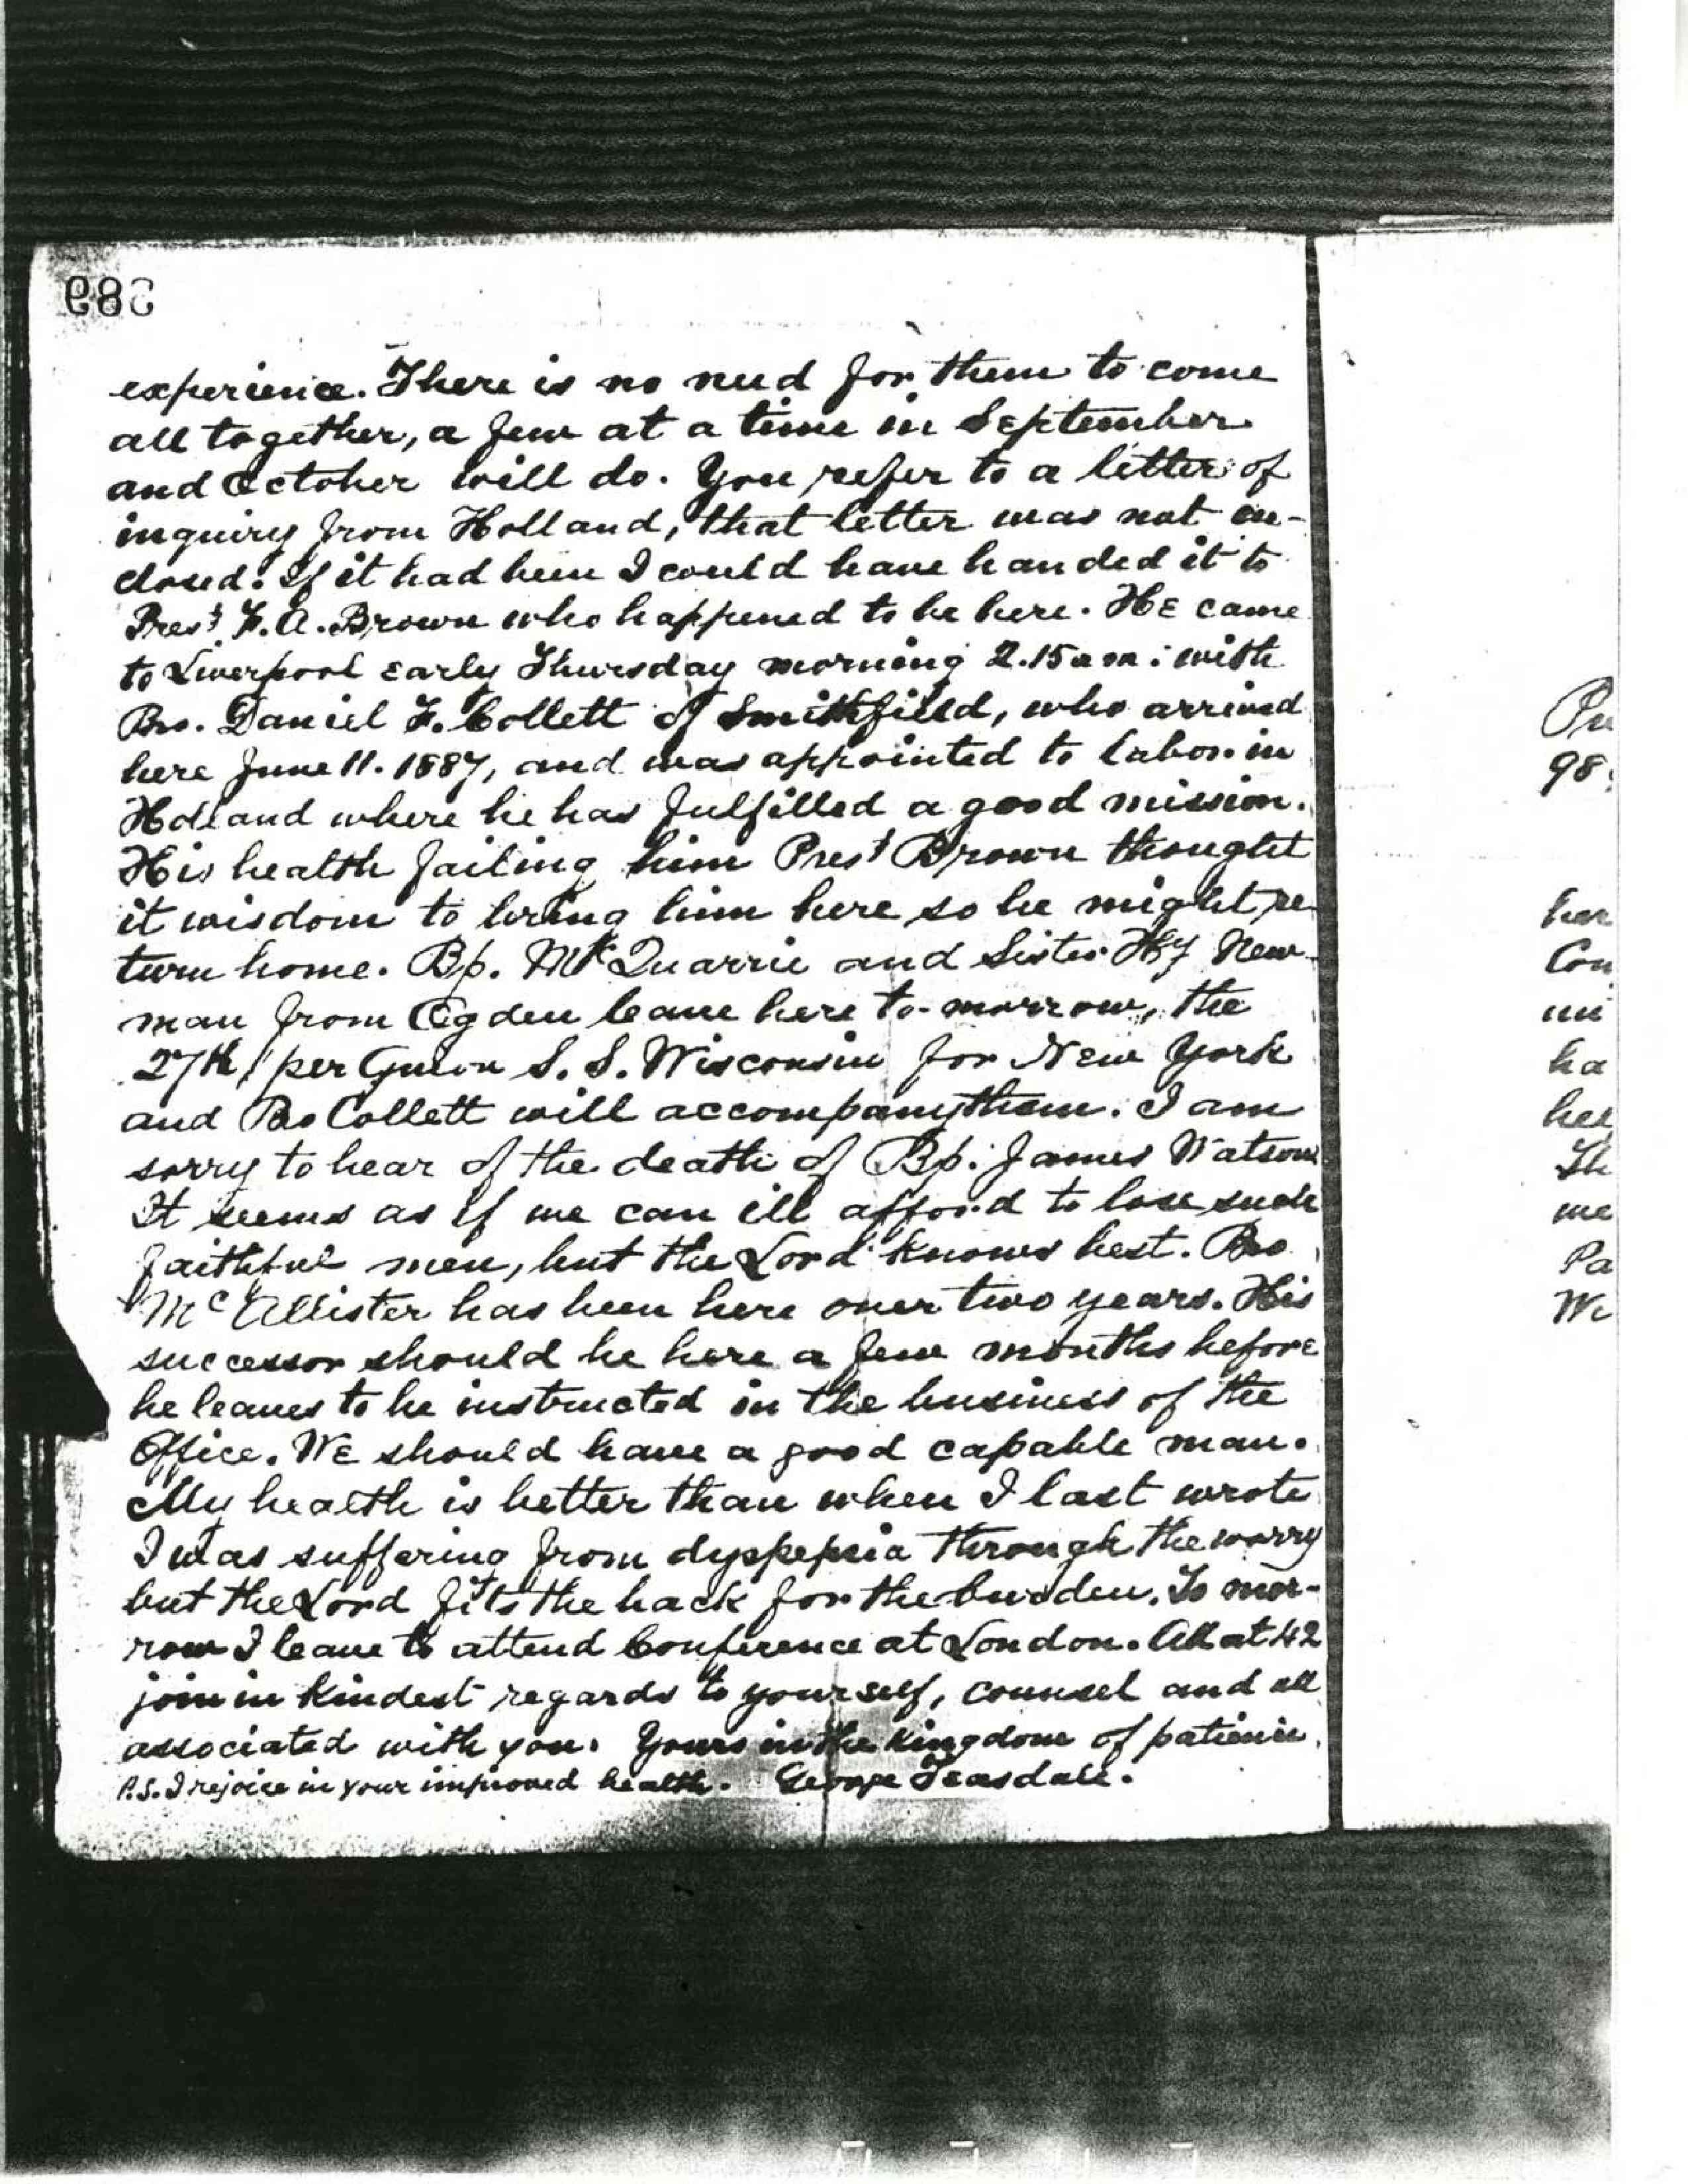 experience. There is no need for them to come
all together, a few at a time in September
and October will do. You refer to a letter of
inquiry from Holland, that letter was not en-
closed. If it had been I could have handed it to
Prest F. A. Brown who happened to be here. He came
to Liverpool early Thursday morning 2.15 a m: with
Bro. Daniel F. Collett of Smithfield, who arrived
here June 11. 1887, and was appointed to labor in
Holland where he has fulfilled a good mission.
His health failing him Prest Brown thought
it wisdom to bring him here so he might re-
turn home. Bp. McQuarrie and Sister Hy New-
man from Ogden leave here to-morrow, the
27th, per Guion S. S. Wisconsin for New York
and Bro Collett will accompany them. I am
sorry to hear of the death of Bp. James Watson
It seems as if we can ill afford to lose such
faithful men, but the Lord knows best. Bro
McAllister has been here over two years. His
successor should be here a few months before
he leaves to be instructed in the business of the
Office. We should have a good capable man.
My health is better than when I last wrote
I was suffering from dyspepsia through the worry
but the Lord fits the back for the burden. To mor-
row I leave to attend Conference at London. All at 42
join in kindest regards to yourself, counsel and all
associated with you. Yours in the kingdom of patience,
P.S. I rejoice in your improved health. George Teasdale.
98
her
Con
ha
me
Pa